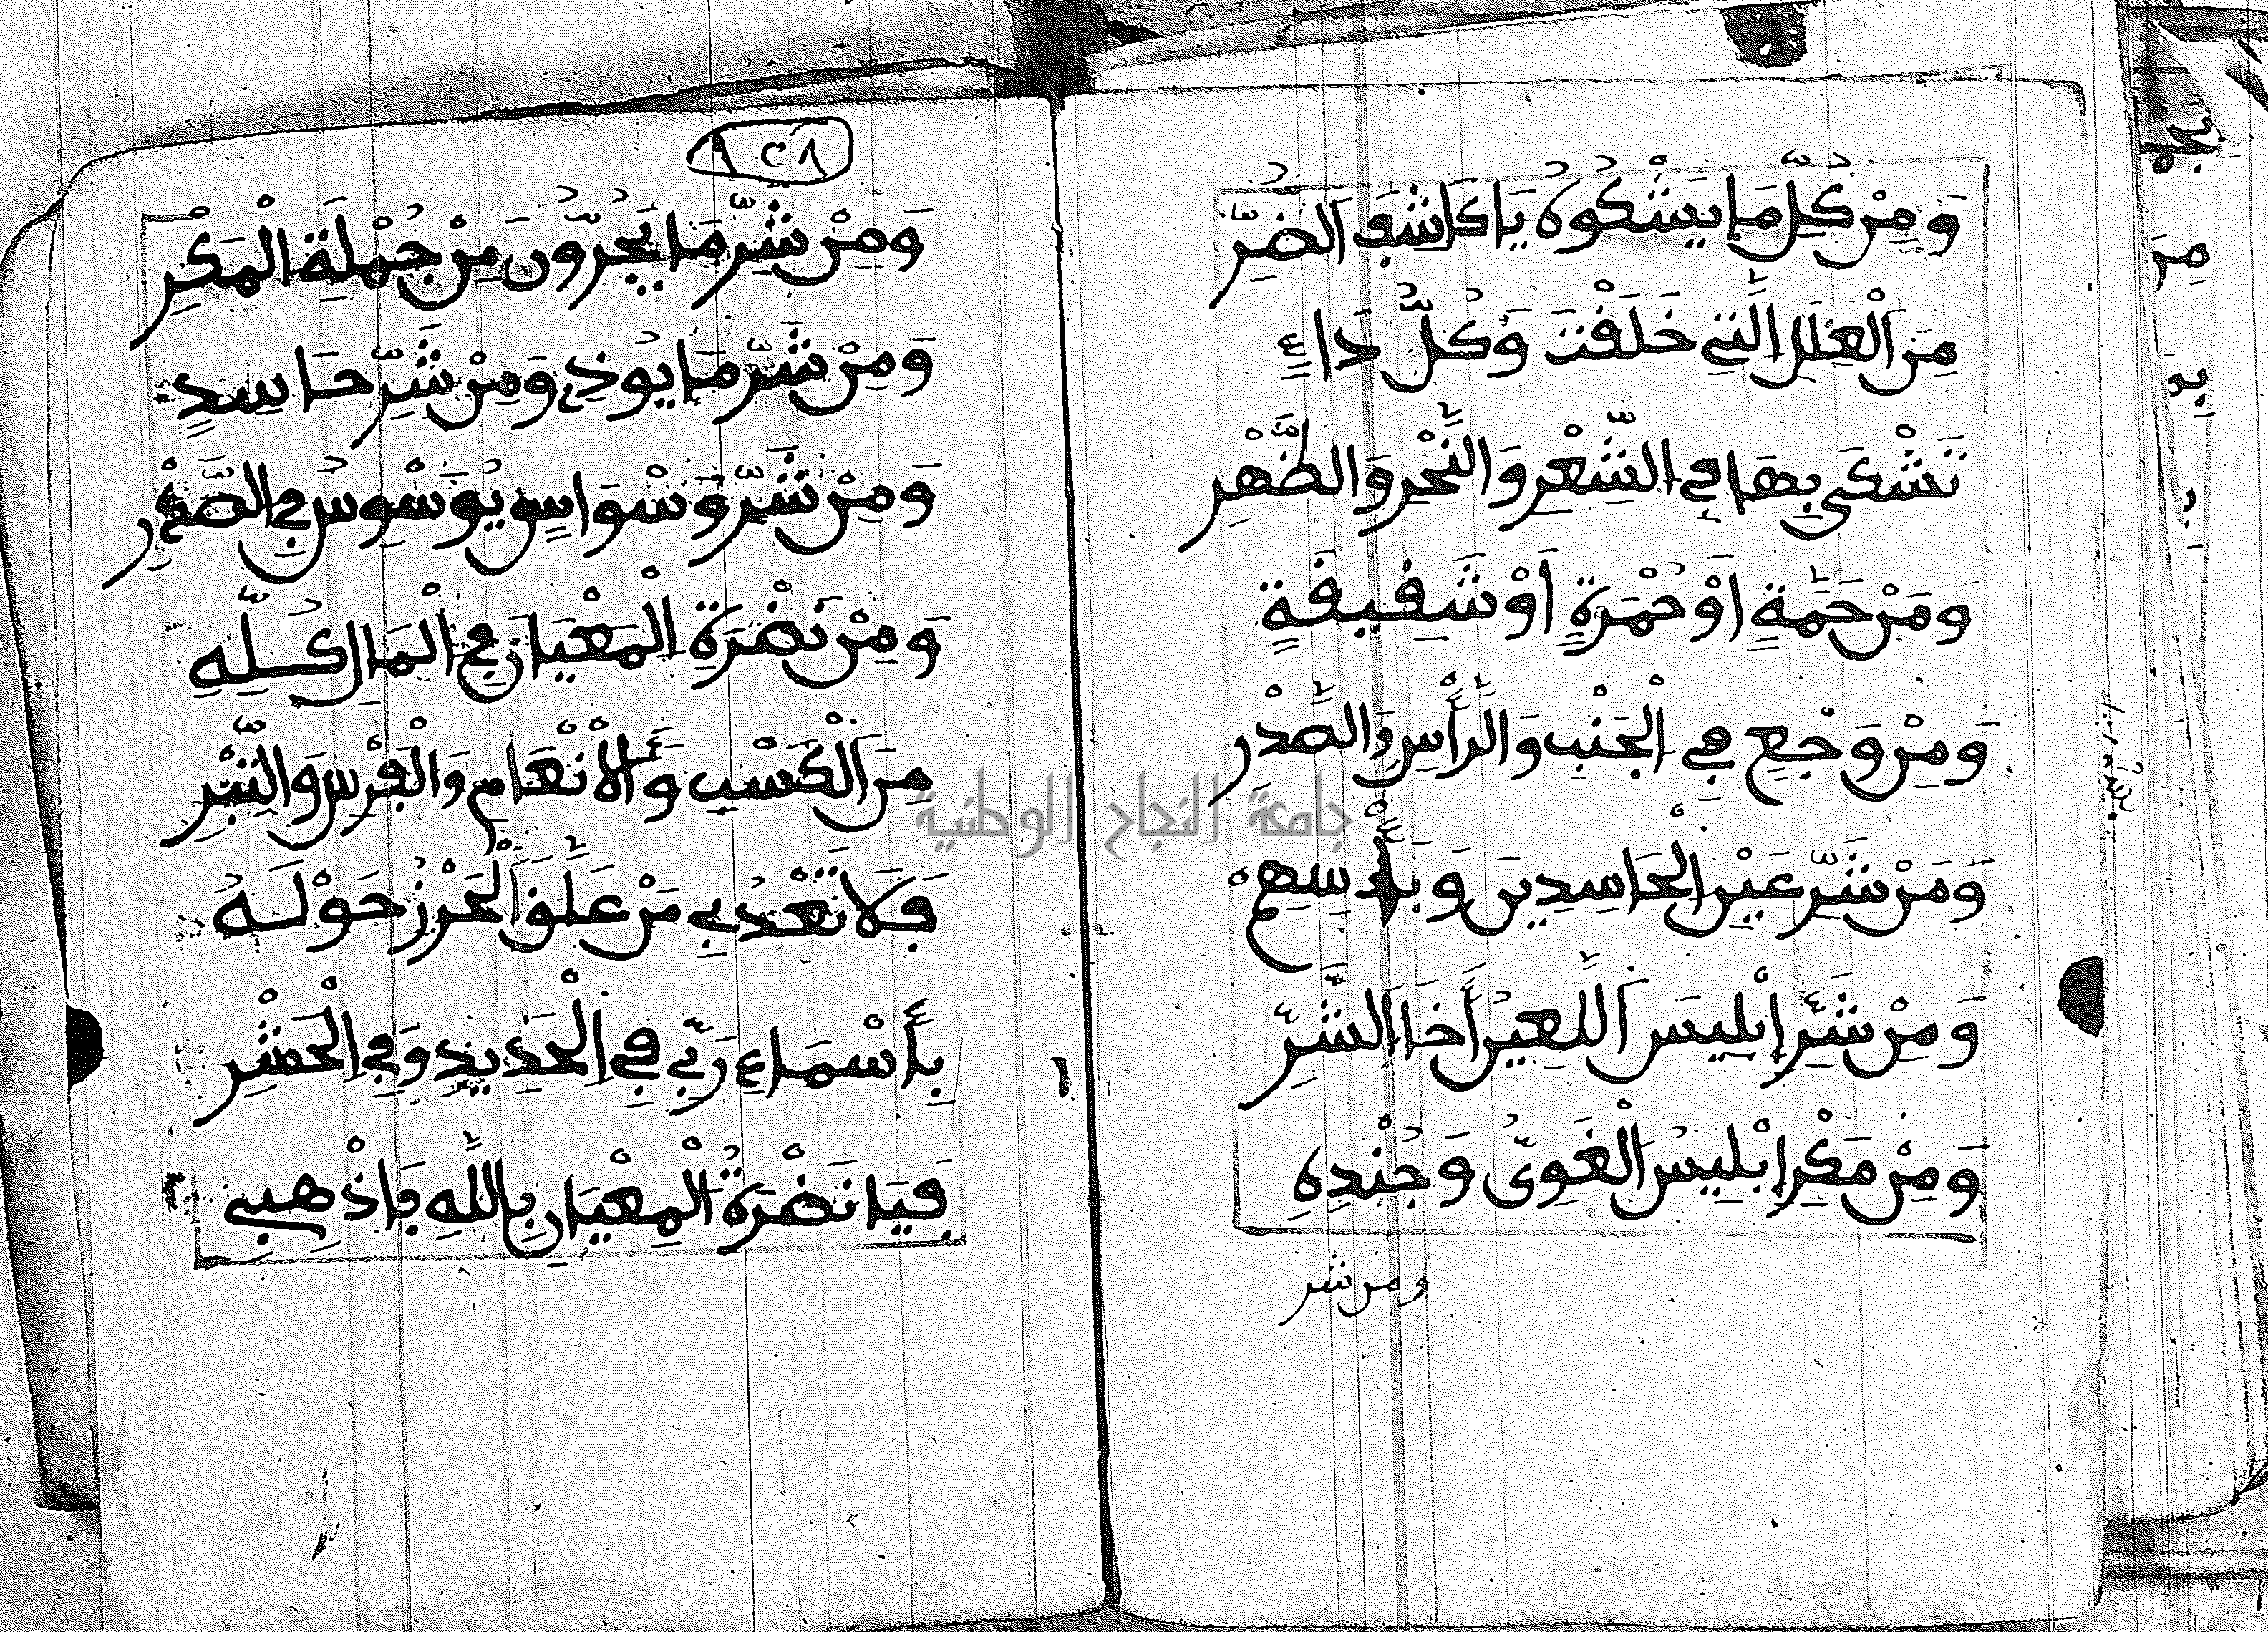 وَمِنْ كُلِّ مَا يَشْكُوهُ يَا كَاشِفَ الضُّرِّ
مِنَ الْعِلَلِ الَّتِي خَلَقْتَ وَكُلِّ دَاءٍ
تَشْكَى بِهَا فِي الشَّعْرِ وَالنَّحْرِ وَالظَّهْرِ
وَمِنْ حُمَّةٍ أَوْ حُمْرَةٍ أَوْ شَقِيقَةٍ
وَمِنْ وَجَعٍ فِي الْجَنْبِ وَالرَّأْسِ وَالصَّدْرِ
وَمِنْ شَرِّ عَيْنِ الْحَاسِدِينَ
وَمِنْ شَرِّ إِبْلِيسَ اللَّعِينِ أَخَا الشَّرِّ
وَمِنْ مَكْرِ إِبْلِيسَ الْغَوِيِّ وَجُنْدِهِ
ومن شر
١٢٨
وَمِنْ شَرِّ مَا يَجُرُّونَ مِنْ جُمْلَةِ الْمَكْرِ
وَمِنْ شَرِّ مَا يُوذِي وَمِنْ شَرِّ حَاسِدٍ
وَمِنْ شَرِّ وَسْوَاسٍ يُوَسْوِسُ فِي الصَّدْرِ
وَمِنْ نَضْرَةِ الْمِعْيَانِ فِي الْمَالِ كُلِّهِ
مِنَ الْكَسْبِ وَالْأَنْعَامِ وَالْفَرْسِ وَالتِّبْرِ
فَلَا تَقْدُبِي مَنْ عَلَّقَ الْحَرْزَ حَوْلَهُ
بِأَسْمَاءِ رَبِّي فِي الْحَدِيدِ وَفِي الْحَشْرِ
فَيَا نَضْرَةَ الْمِعْيَانِ بِاللَّهِ فَاذْهَبِي
جامعة النجاح الوطنية